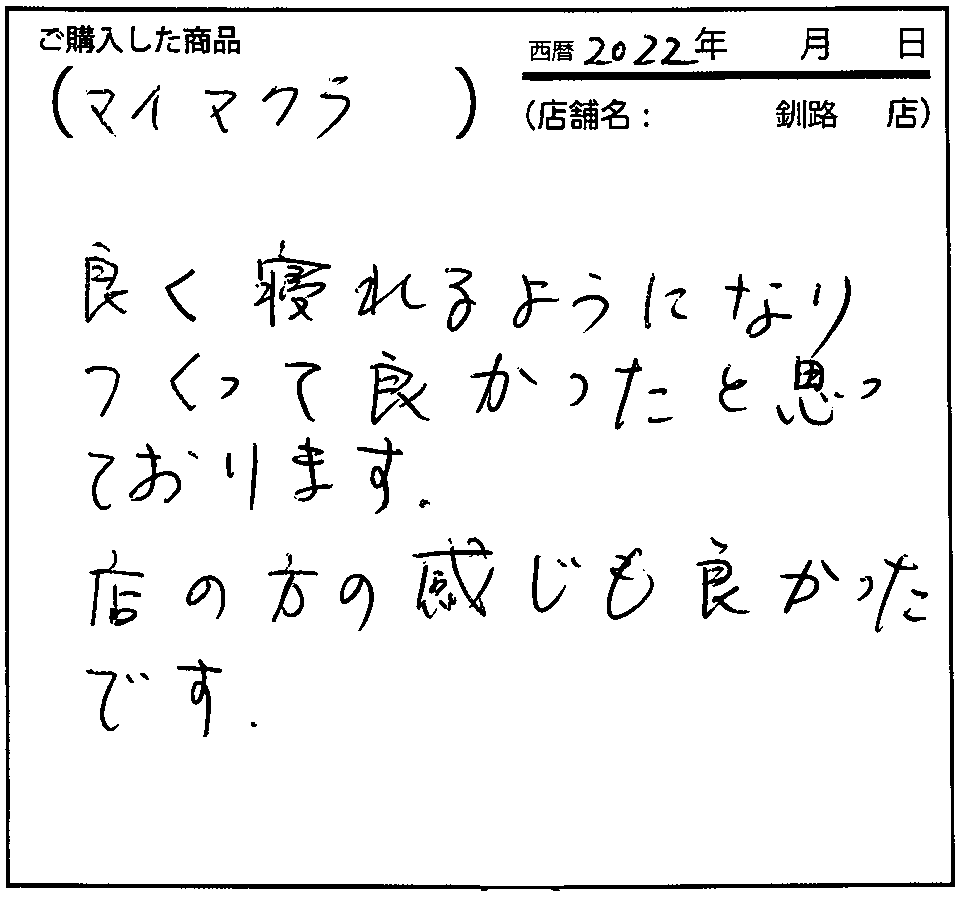 ご購入した商品
西暦 2022年 月 日
(マイマクラ )
(店舗名: 釧路 店)
良く寝れるようになり
つくって良かったと思っ
ております.
店の方の感じも良かった
です.